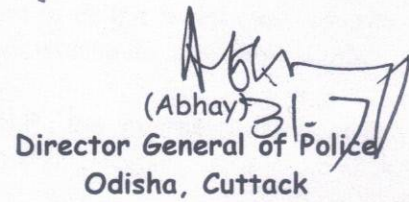 (Abhay)
31-7
Director General of Police
Odisha, Cuttack